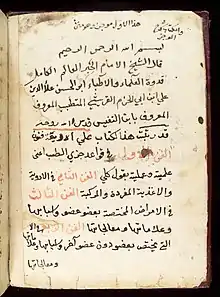 هذا الاول من موجز
بسم الله الرحمن الرحيم
قال الشيخ الامام الحبر العالم الكامل
قدوة العلماء والاطباء ابو الحسن علاء الدين
علي ابن ابي الحزم القرشي المتطبب المعروف
المعروف بابن النفيس قدس الله روحه
قد رتبت هذا كتاب علي اربعة فنون
الفن الاول في قواعد جزئي الطب اعني
علمية وعملية بقول كلي الفن الثاني في الادوية
والاغذية المفردة والمركبة الفن الثالث
في الامراض المختصة بعضو عضو واسبابها
وعلاماتها ومعالجاتها الفن الرابع في الامراض
التي لا تختص بعضو دون عضو اخر واسبابها وعلاماتها
ومعالجاتها